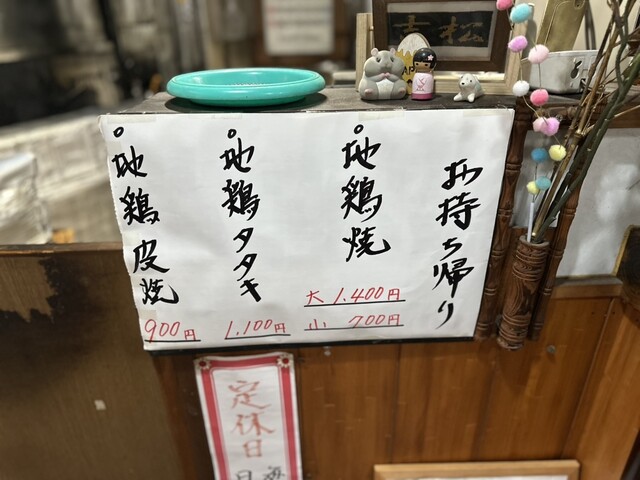 お持ち帰り
○地鶏焼
大 1.400円
小 700円
○地鶏タタキ
1,100円
○地鶏皮焼
900円
定休日